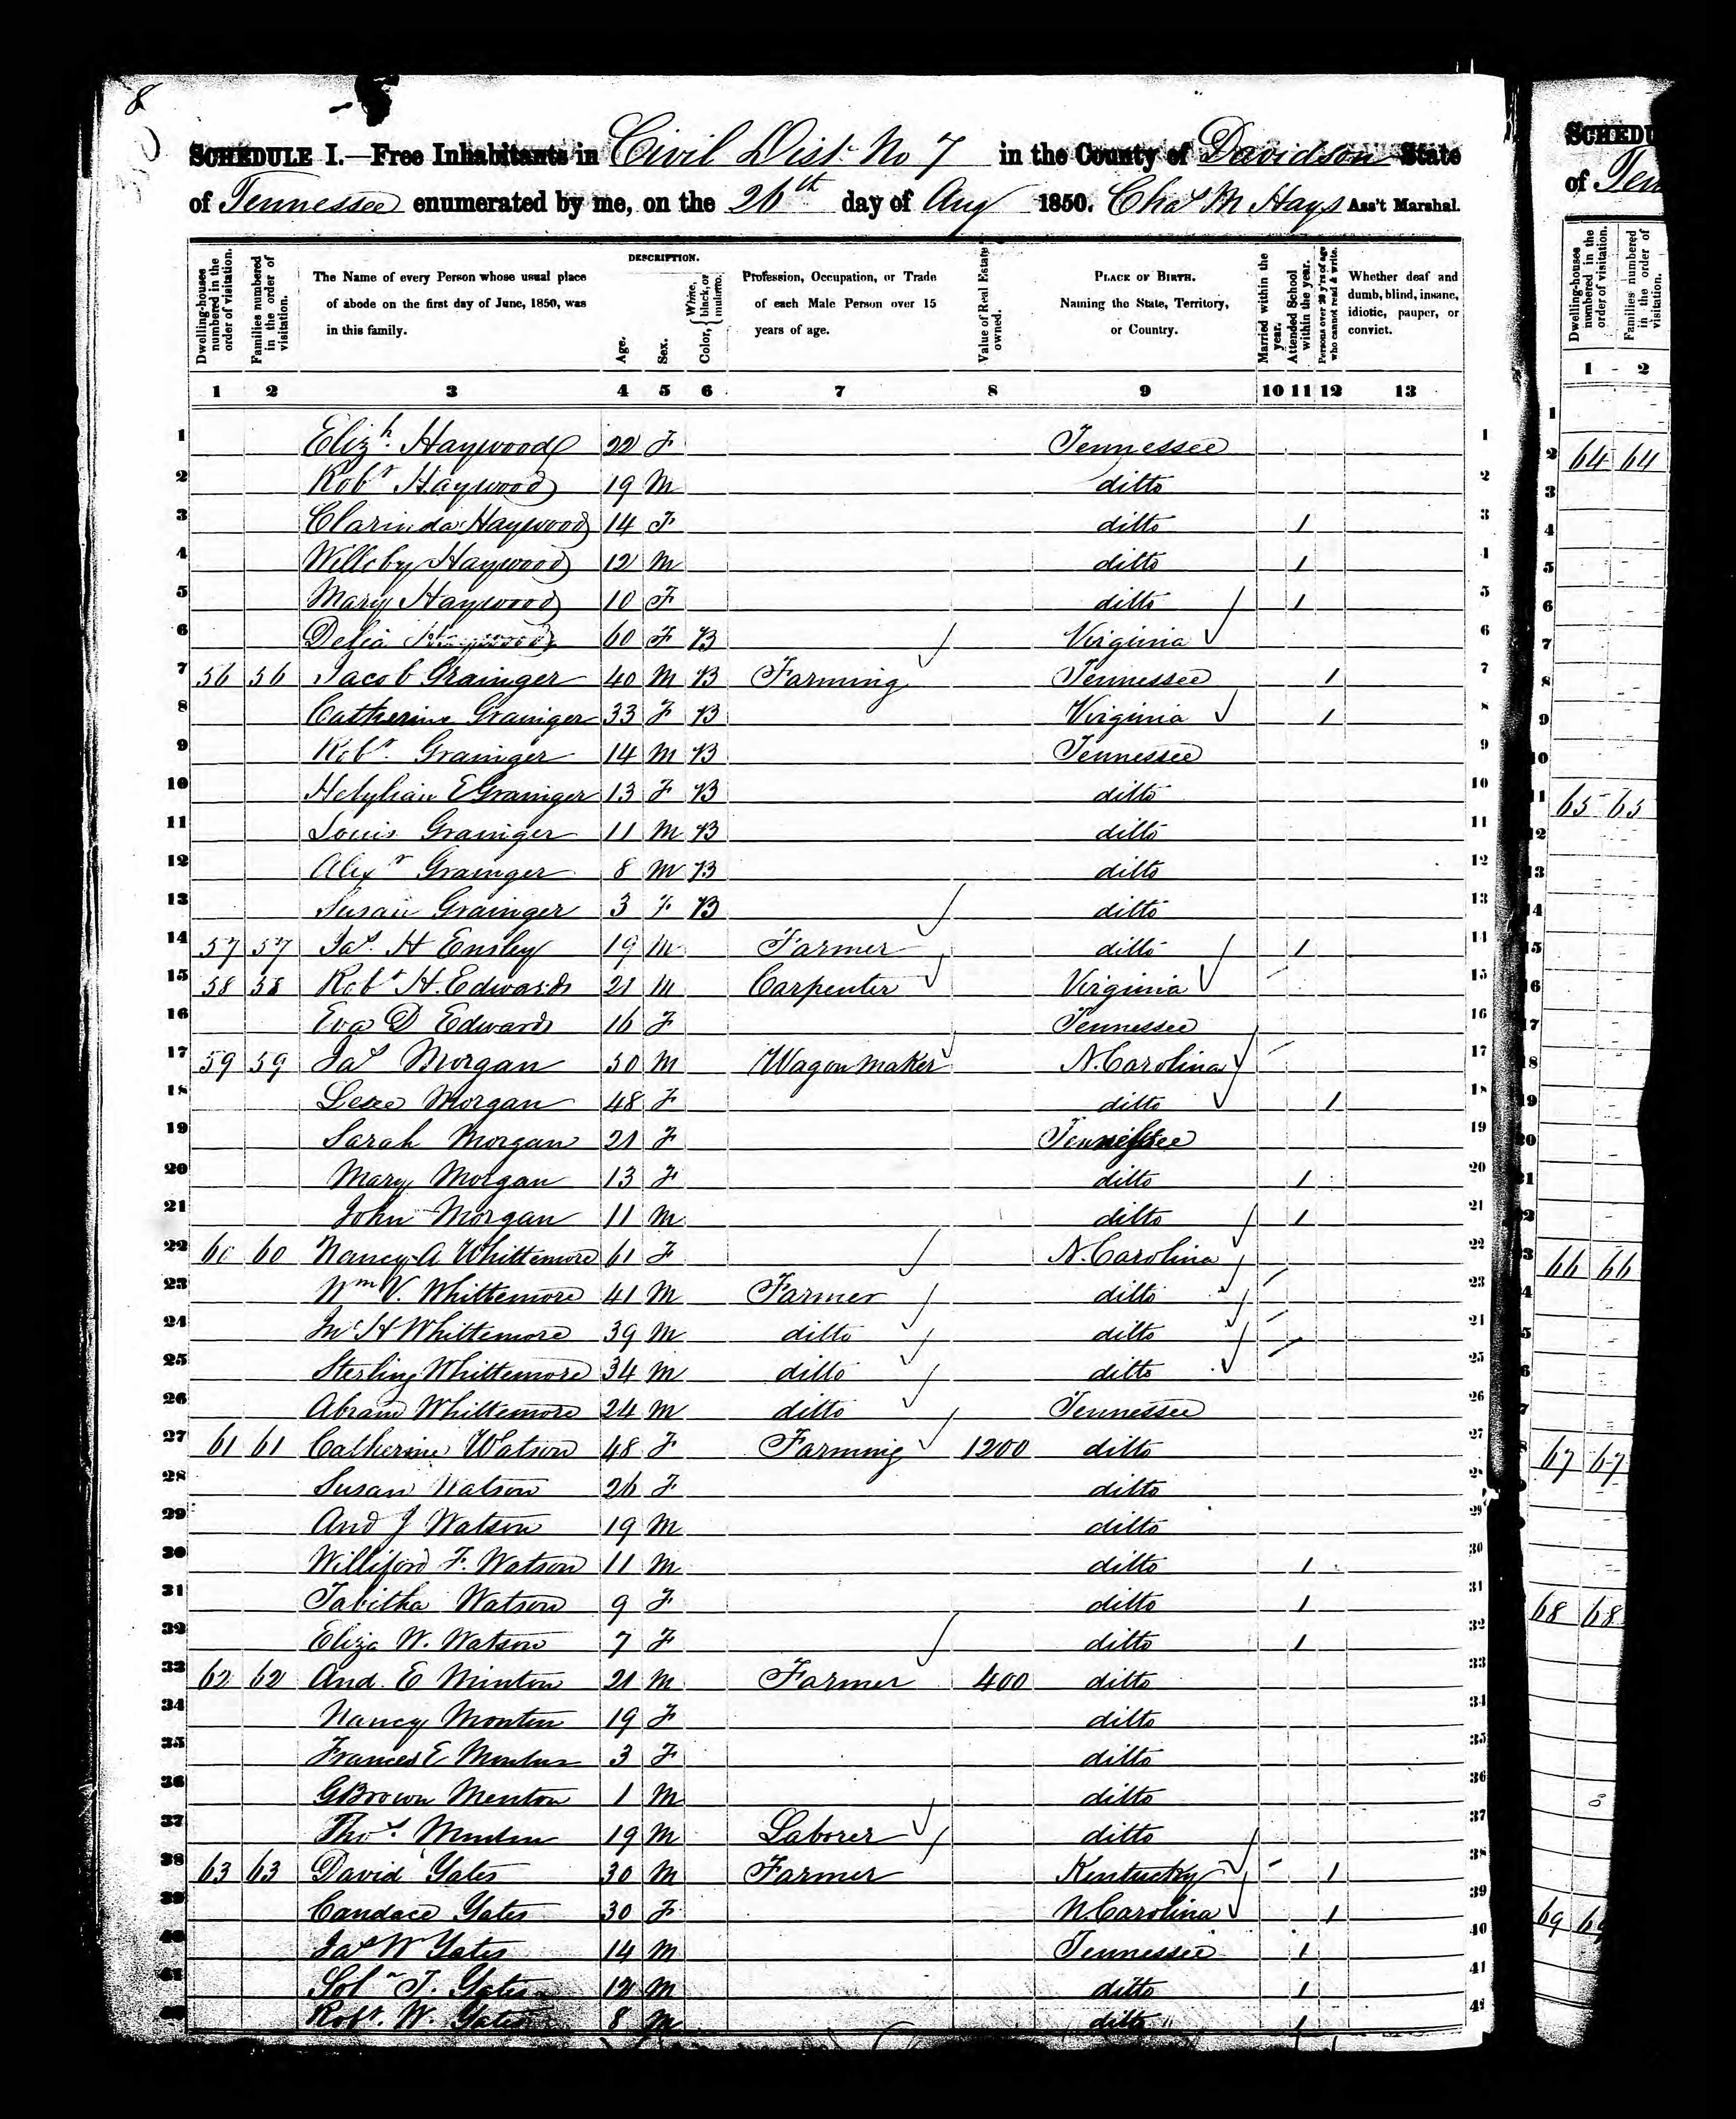 8
SCHEDULE I.—Free Inhabitants in Civil Dist No 7 in the County of Davidson State
of Tennessee enumerated by me, on the 26th day of Aug 1850. Chas M Hays Ass't Marshal.
Dwelling-houses numbered in the order of visitation.
Families numbered in the order of visitation.
The Name of every Person whose usual place of abode on the first day of June, 1850, was in this family.
DESCRIPTION.
Age.
Sex.
Color, White, black, or mulatto.
Profession, Occupation, or Trade of each Male Person over 15 years of age.
Value of Real Estate owned.
PLACE OF BIRTH. Naming the State, Territory, or Country.
Married within the year.
Attended School within the year.
Persons over 20 y'rs of age who cannot read & write.
Whether deaf and dumb, blind, insane, idiotic, pauper, or convict.
1 2 3 4 5 6 7 8 9 10 11 12 13
1 Elizh. Haywood 22 F Tennessee 1
2 Robt Haywood 19 M ditto 2
3 Clarinda Haywood 14 F ditto 1 3
4 Willoby Haywood 12 M ditto 1 4
5 Mary Haywood 10 F ditto 1 5
6 Delia 60 F B Virginia 6
7 56 56 Jacob Grainger 40 M B Farming Tennessee 1 7
8 Catherine Grainger 33 F B Virginia 1 8
9 Robt. Grainger 14 M B Tennessee 9
10 E Grainger 13 F B ditto 10
11 Louis Grainger 11 M B ditto 11
12 Alexr Grainger 8 M B ditto 12
13 Susan Grainger 3 F B ditto 13
14 57 57 Jas. H Ensley 19 M Farmer ditto 1 14
15 58 58 Robt H. Edwards 21 M Carpenter Virginia 15
16 Eva D Edwards 16 F Tennessee 16
17 59 59 Jas Morgan 50 M Wagon maker N. Carolina 17
18 Morgan 48 F ditto 1 18
19 Sarah Morgan 21 F Tennessee 19
20 Mary Morgan 13 F ditto 1 20
21 John Morgan 11 M ditto 1 21
22 60 60 Nancy A Whittemore 61 F N. Carolina 22
23 Wm V. Whittemore 41 M Farmer ditto 23
24 Jno H Whittemore 39 M ditto ditto 24
25 Sterling Whittemore 34 M ditto ditto 25
26 Abram Whittemore 24 M ditto Tennessee 26
27 61 61 Catherine Watson 48 F Farming 1200 ditto 27
28 Susan Watson 26 F ditto 28
29 And J Watson 19 M ditto 29
30 Williford F. Watson 11 M ditto 1 30
31 Tabitha Watson 9 F ditto 1 31
32 Eliza W. Watson 7 F ditto 1 32
33 62 62 And. E Minton 21 M Farmer 400 ditto 33
34 Nancy Monton 19 F ditto 34
35 Frances E Minton 3 F ditto 35
36 G Brown Menton 1 M ditto 36
37 Thos. Minton 19 M Laborer ditto 37
38 63 63 David Yates 30 M Farmer Kentucky 1 38
39 Candace Yates 30 F N. Carolina 1 39
40 Jas W Yates 14 M Tennessee 1 40
41 Soln T. Yates 12 M ditto 1 41
42 Robt. W. Yates 8 M ditto 1 42
SCHEDU
of Ten
Dwelling-houses numbered in the order of visitation.
Families numbered in the order of visitation.
1 2
64 64
65 65
66 66
67 67
68 68
69 69